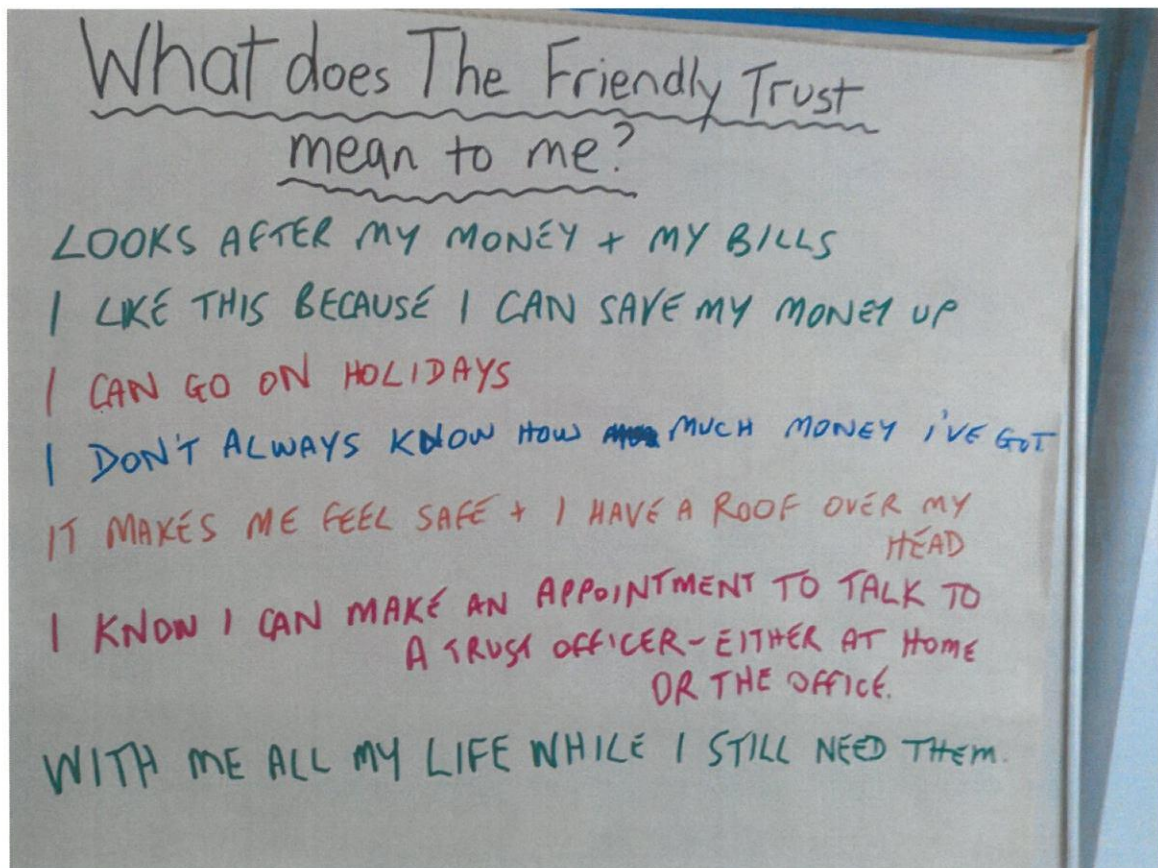 What does The Friendly Trust
mean to me?
LOOKS AFTER MY MONEY + MY BILLS
I LIKE THIS BECAUSE I CAN SAVE MY MONEY UP
I CAN GO ON HOLIDAYS
I DON'T ALWAYS KNOW HOW MUCH MONEY I'VE GOT
IT MAKES ME FEEL SAFE + I HAVE A ROOF OVER MY
HEAD
I KNOW I CAN MAKE AN APPOINTMENT TO TALK TO
A TRUST OFFICER - EITHER AT HOME
OR THE OFFICE.
WITH ME ALL MY LIFE WHILE I STILL NEED THEM.